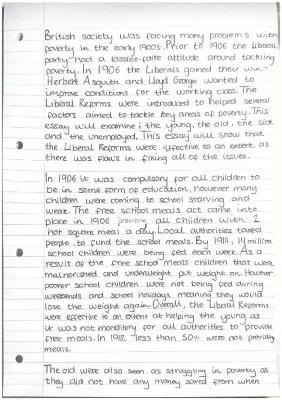 British society was facing many problems with
poverty in the early 1900s. Prior to 1906 the Liberal
party had a lassiez-faire attitude around tackling
poverty. In 1906 the Liberals gained their win -
Herbert Asquith and Lloyd George wanted to
improve conditions for the working class. The
Liberal Reforms were introduced to helped several
factors aimed to tackle key areas of poverty. This
essay will examine; the young, the old, the sick
and the unemployed. This essay will show that
the Liberal Reforms were effective to an extent as
there was flaws in fixing all of the issues.
In 1906 it was compulsory for all children to
be in some form of education, however many
children were coming to school starving and
weak. The free school meals act came into
place in 1906 all children with 1
hot square meal a day. Local authorities taxed
people to fund the school meals. By 1914, 14 million
school children were being fed each week. As a
result of the free school meals children that were
malnorished and underweight put weight on. However
poorer school children were not being fed during
weekends and school holidays meaning they would
lose the weight again. Overall, the Liberal Reforms
were effective to an extent at helping the young as
it was not manditory for all authorities to provide
free meals. In 1912 less than 50% were not providing
meals.
The old were also seen as struggling in poverty as
they did not have any money saved from when